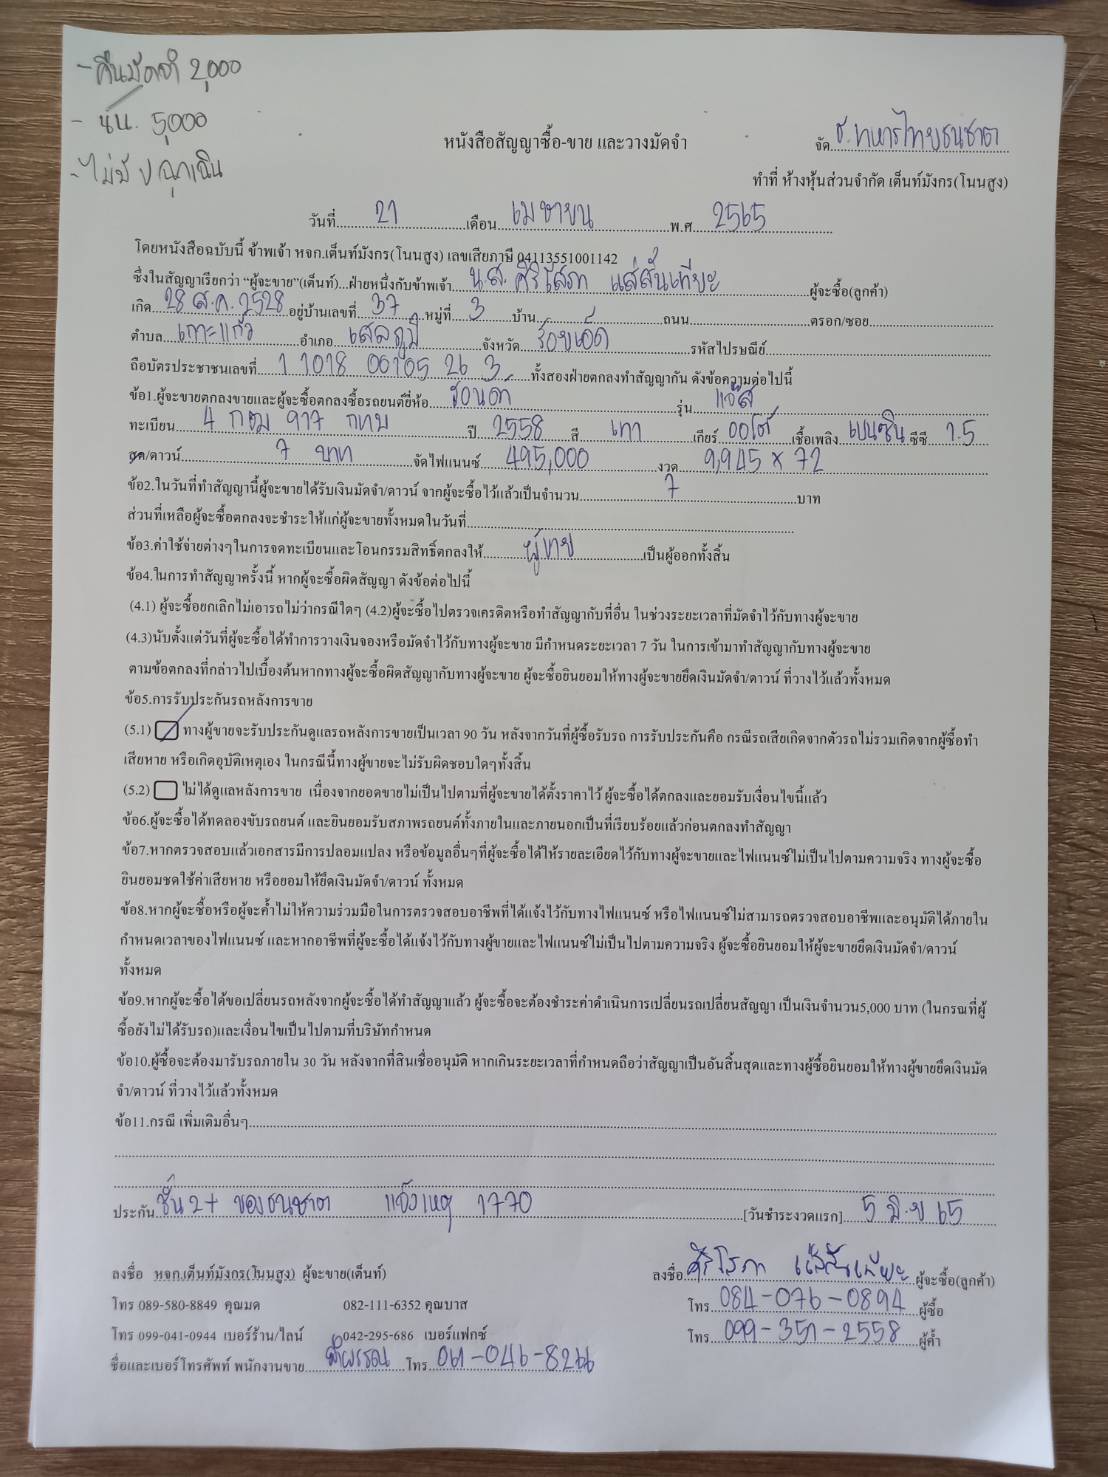 - คืนมัดจำ 2,000
- นน. 5,000
- ไม่มี ป ฉุกเฉิน
หนังสือสัญญาซื้อ-ขาย และวางมัดจำ
จัด ธ.ทหารไทยธนชาต
ทำที่ ห้างหุ้นส่วนจำกัด เต็นท์มังกร(โนนสูง)
วันที่ 21 เดือน เมษายน พ.ศ. 2565
โดยหนังสือฉบับนี้ ข้าพเจ้า หจก.เต็นท์มังกร(โนนสูง) เลขเสียภาษี 04113551001142
ซึ่งในสัญญาเรียกว่า "ผู้จะขาย"(เต็นท์)...ฝ่ายหนึ่งกับข้าพเจ้า น.ส. ศิริโสภา แสสันเทียะ ผู้จะซื้อ(ลูกค้า)
เกิด 28 ส.ค. 2528 อยู่บ้านเลขที่ 37 หมู่ที่ 3 บ้าน ถนน ตรอก/ซอย
ตำบล เกาะแก้ว อำเภอ เสลภูมิ จังหวัด ร้อยเอ็ด รหัสไปรษณีย์
ถือบัตรประชาชนเลขที่ 1 1018 00105 26 3 ทั้งสองฝ่ายตกลงทำสัญญากัน ดังข้อความต่อไปนี้
ข้อ1.ผู้จะขายตกลงขายและผู้จะซื้อตกลงซื้อรถยนต์ยี่ห้อ ฮอนด้า รุ่น แจ๊ส
ทะเบียน 4 กฌ 917 กทม ปี 2558 สี เทา เกียร์ ออโต้ เชื้อเพลิง เบนซิน ซีซี 1.5
สด/ดาวน์ 7 บาท จัดไฟแนนซ์ 495,000 งวด 9,945 x 72
ข้อ2.ในวันที่ทำสัญญานี้ผู้จะขายได้รับเงินมัดจำ/ดาวน์ จากผู้จะซื้อไว้แล้วเป็นจำนวน 7 บาท
ส่วนที่เหลือผู้จะซื้อตกลงจะชำระให้แก่ผู้จะขายทั้งหมดในวันที่
ข้อ3.ค่าใช้จ่ายต่างๆในการจดทะเบียนและโอนกรรมสิทธิ์ตกลงให้ ผู้ขาย เป็นผู้ออกทั้งสิ้น
ข้อ4.ในการทำสัญญาครั้งนี้ หากผู้จะซื้อผิดสัญญา ดังข้อต่อไปนี้
(4.1) ผู้จะซื้อยกเลิกไม่เอารถไม่ว่ากรณีใดๆ (4.2)ผู้จะซื้อไปตรวจเครดิตหรือทำสัญญากับที่อื่น ในช่วงระยะเวลาที่มัดจำไว้กับทางผู้จะขาย
(4.3)นับตั้งแต่วันที่ผู้จะซื้อได้ทำการวางเงินจองหรือมัดจำไว้กับทางผู้จะขาย มีกำหนดระยะเวลา 7 วัน ในการเข้ามาทำสัญญากับทางผู้จะขาย
ตามข้อตกลงที่กล่าวไปเบื้องต้นหากทางผู้จะซื้อผิดสัญญากับทางผู้จะขาย ผู้จะซื้อยินยอมให้ทางผู้จะขายยึดเงินมัดจำ/ดาวน์ ที่วางไว้แล้วทั้งหมด
ข้อ5.การรับประกันรถหลังการขาย
(5.1) ทางผู้ขายจะรับประกันดูแลรถหลังการขายเป็นเวลา 90 วัน หลังจากวันที่ผู้ซื้อรับรถ การรับประกันคือ กรณีรถเสียเกิดจากตัวรถไม่รวมเกิดจากผู้ซื้อทำ
เสียหาย หรือเกิดอุบัติเหตุเอง ในกรณีนี้ทางผู้ขายจะไม่รับผิดชอบใดๆทั้งสิ้น
(5.2) ไม่ได้ดูแลหลังการขาย เนื่องจากยอดขายไม่เป็นไปตามที่ผู้จะขายได้ตั้งราคาไว้ ผู้จะซื้อได้ตกลงและยอมรับเงื่อนไขนี้แล้ว
ข้อ6.ผู้จะซื้อได้ทดลองขับรถยนต์ และยินยอมรับสภาพรถยนต์ทั้งภายในและภายนอกเป็นที่เรียบร้อยแล้วก่อนตกลงทำสัญญา
ข้อ7.หากตรวจสอบแล้วเอกสารมีการปลอมแปลง หรือข้อมูลอื่นๆที่ผู้จะซื้อได้ให้รายละเอียดไว้กับทางผู้จะขายและไฟแนนซ์ไม่เป็นไปตามความจริง ทางผู้จะซื้อ
ยินยอมชดใช้ค่าเสียหาย หรือยอมให้ยึดเงินมัดจำ/ดาวน์ ทั้งหมด
ข้อ8.หากผู้จะซื้อหรือผู้จะค้ำไม่ให้ความร่วมมือในการตรวจสอบอาชีพที่ได้แจ้งไว้กับทางไฟแนนซ์ หรือไฟแนนซ์ไม่สามารถตรวจสอบอาชีพและอนุมัติได้ภายใน
กำหนดเวลาของไฟแนนซ์ และหากอาชีพที่ผู้จะซื้อได้แจ้งไว้กับทางผู้ขายและไฟแนนซ์ไม่เป็นไปตามความจริง ผู้จะซื้อยินยอมให้ผู้จะขายยึดเงินมัดจำ/ดาวน์
ทั้งหมด
ข้อ9.หากผู้จะซื้อได้ขอเปลี่ยนรถหลังจากผู้จะซื้อได้ทำสัญญาแล้ว ผู้จะซื้อจะต้องชำระค่าดำเนินการเปลี่ยนรถเปลี่ยนสัญญา เป็นเงินจำนวน5,000 บาท (ในกรณที่ผู้
ซื้อยังไม่ได้รับรถ)และเงื่อนไขเป็นไปตามที่บริษัทกำหนด
ข้อ10.ผู้ซื้อจะต้องมารับรถภายใน 30 วัน หลังจากที่สินเชื่ออนุมัติ หากเกินระยะเวลาที่กำหนดถือว่าสัญญาเป็นอันสิ้นสุดและทางผู้ซื้อยินยอมให้ทางผู้ขายยึดเงินมัด
จำ/ดาวน์ ที่วางไว้แล้วทั้งหมด
ข้อ11.กรณี เพิ่มเติมอื่นๆ
ประกัน ชั้น 2+ ของธนชาต แจ้งเหตุ 1770 [วันชำระงวดแรก] 5 มิ.ย 65
ลงชื่อ หจก.เต็นท์มังกร(โนนสูง) ผู้จะขาย(เต็นท์)
ลงชื่อ ศิริโสภา แสสันเทียะ ผู้จะซื้อ(ลูกค้า)
โทร 089-580-8849 คุณมด 082-111-6352 คุณบาส
โทร 084-076-0894 ผู้ซื้อ
โทร 099-041-0944 เบอร์ร้าน/ไลน์ 042-295-686 เบอร์แฟกซ์
โทร 099-351-2558 ผู้ค้ำ
ชื่อและเบอร์โทรศัพท์ พนักงานขาย โทร 061-046-8266